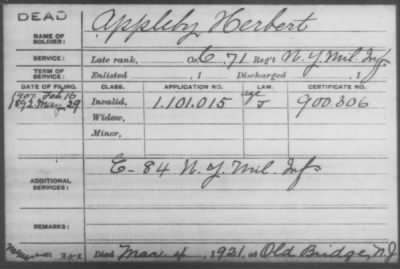 DEAD
NAME OF SOLDIER: Appleby Herbert
SERVICE: Late rank, Co. C. 71. Reg't N. Y. Mil. Inf
TERM OF SERVICE: Enlisted , 1 Discharged , 1
DATE OF FILING. CLASS. APPLICATION NO. LAW. CERTIFICATE NO.
1907 Feb 16 age
1892 May 29 Invalid, 1.101.015 J 900306
Widow,
Minor,
ADDITIONAL SERVICES: C - 84 N. Y. Mil. Inf
REMARKS:
Died Mar. 4, 1921, at Old Bridge, N.J.